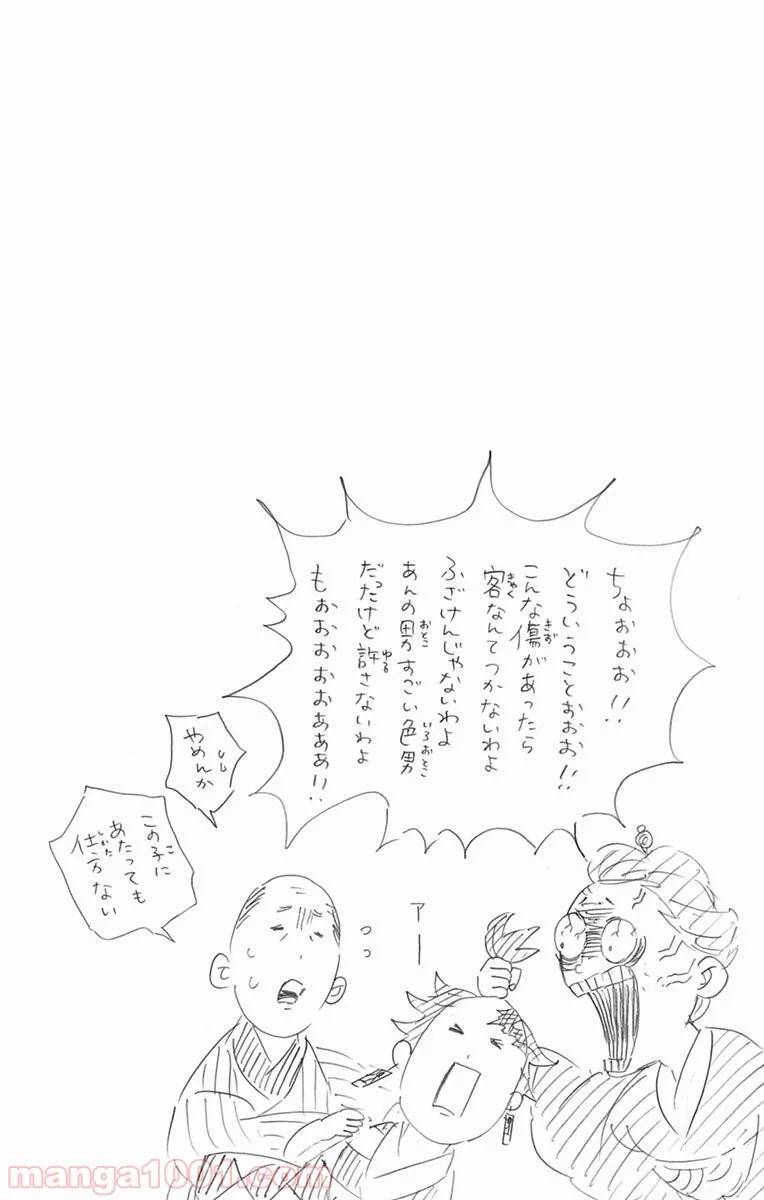 ちょおおお!!
どういうことおおお!!
こんな傷があったら
客なんてつかないわよ
ふざけんじゃないわよ
あんの男すごい色男
だったけど許さないわよ
もぉおおおおあああ!!
やめんか
この子に
あたっても
仕方ない
アー
manga1001.com